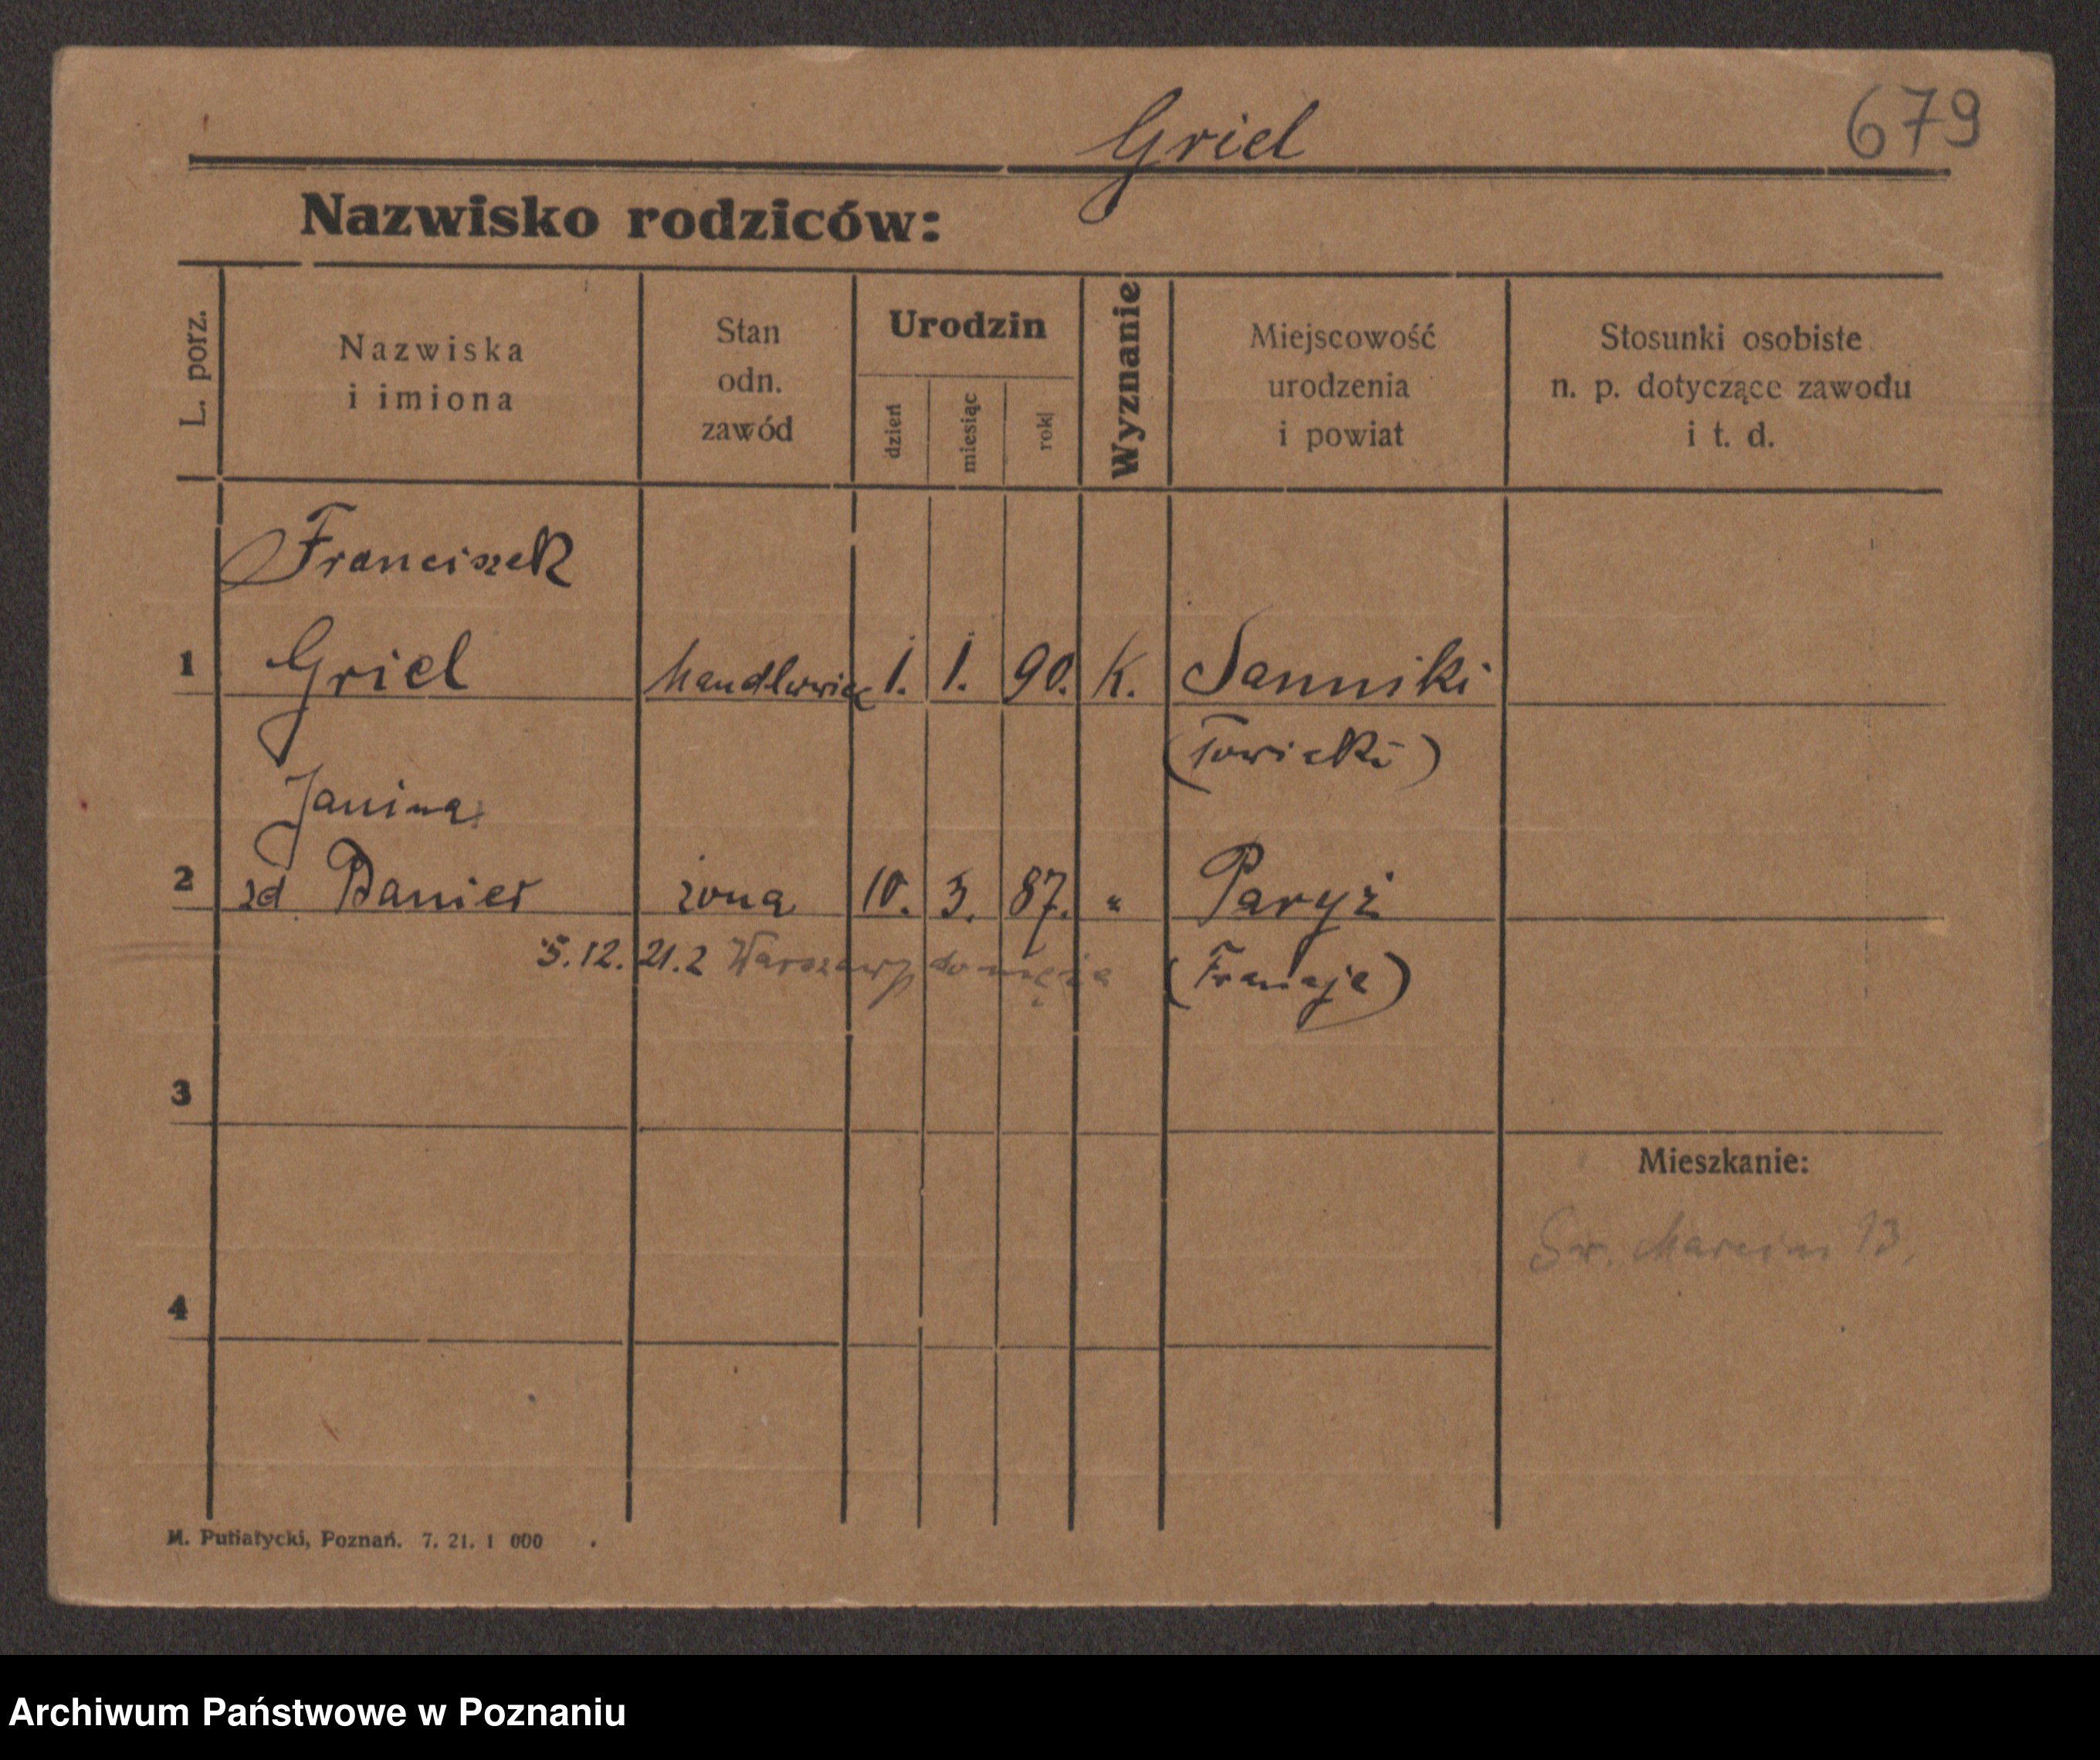 Griel 679
Nazwisko rodziców:
L. porz.
Nazwiska
i imiona
Stan
odn.
zawód
Urodzin
dzień
miesiąc
rok
Wyznanie
Miejscowość
urodzenia
i powiat
Stosunki osobiste
n. p. dotyczące zawodu
i t. d.
Franciszek
1 Griel handlowiec 1. 1. 90. K. Sanniki
Janina
2 zd Banier żona 10. 3. 87. " Paryż
5.12.21. z Warszawy do męża (Francja)
3
Mieszkanie:
Św. Marcin 13.
4
M. Putiatycki, Poznań. 7. 21. 1 000
Archiwum Państwowe w Poznaniu